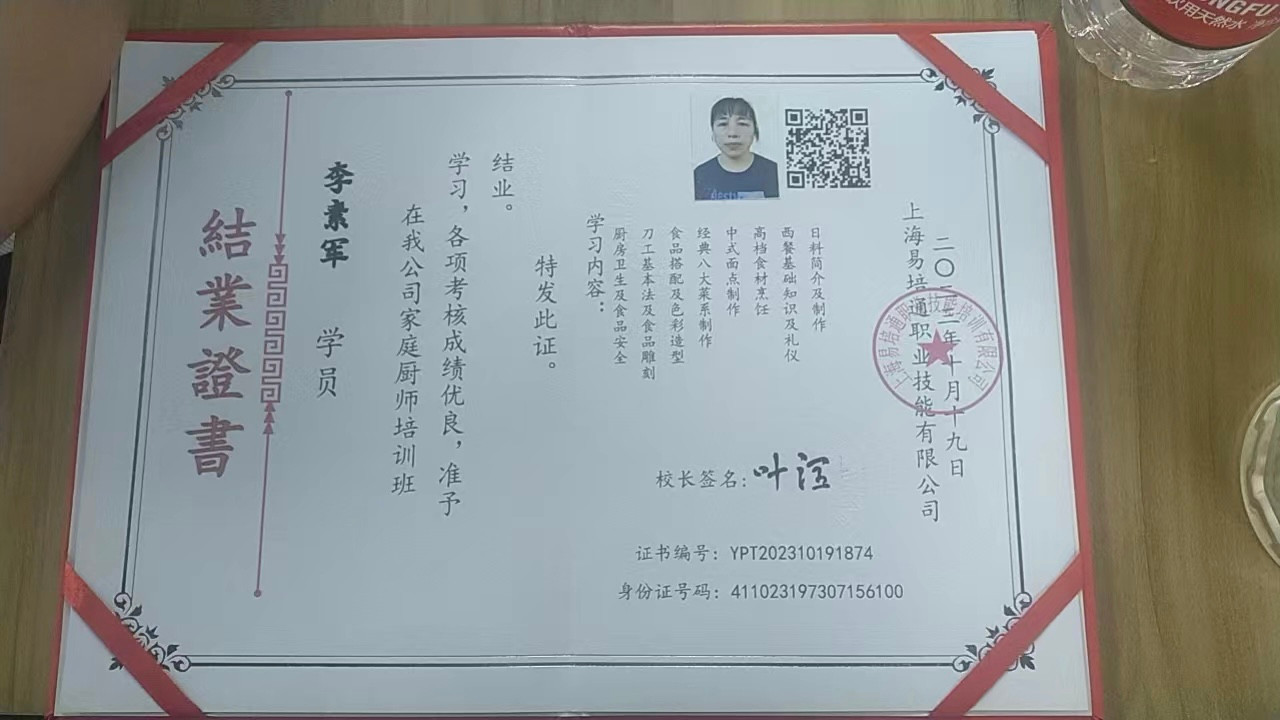 結業證書
李素军 学员
在我公司家庭厨师培训班
学习，各项考核成绩优良，准予
结业。
特发此证。
学习内容：
厨房卫生及食品安全
刀工基本法及食品雕刻
食品搭配及色彩造型
经典八大菜系制作
中式面点制作
高档食材烹饪
西餐基础知识及礼仪
日料简介及制作
校长签名：叶泾
证书编号：YPT202310191874
身份证号码：411023197307156100
上海易培通职业技能有限公司
二〇二三年十月十九日
上海易培通职业技能培训有限公司
饮用天然水